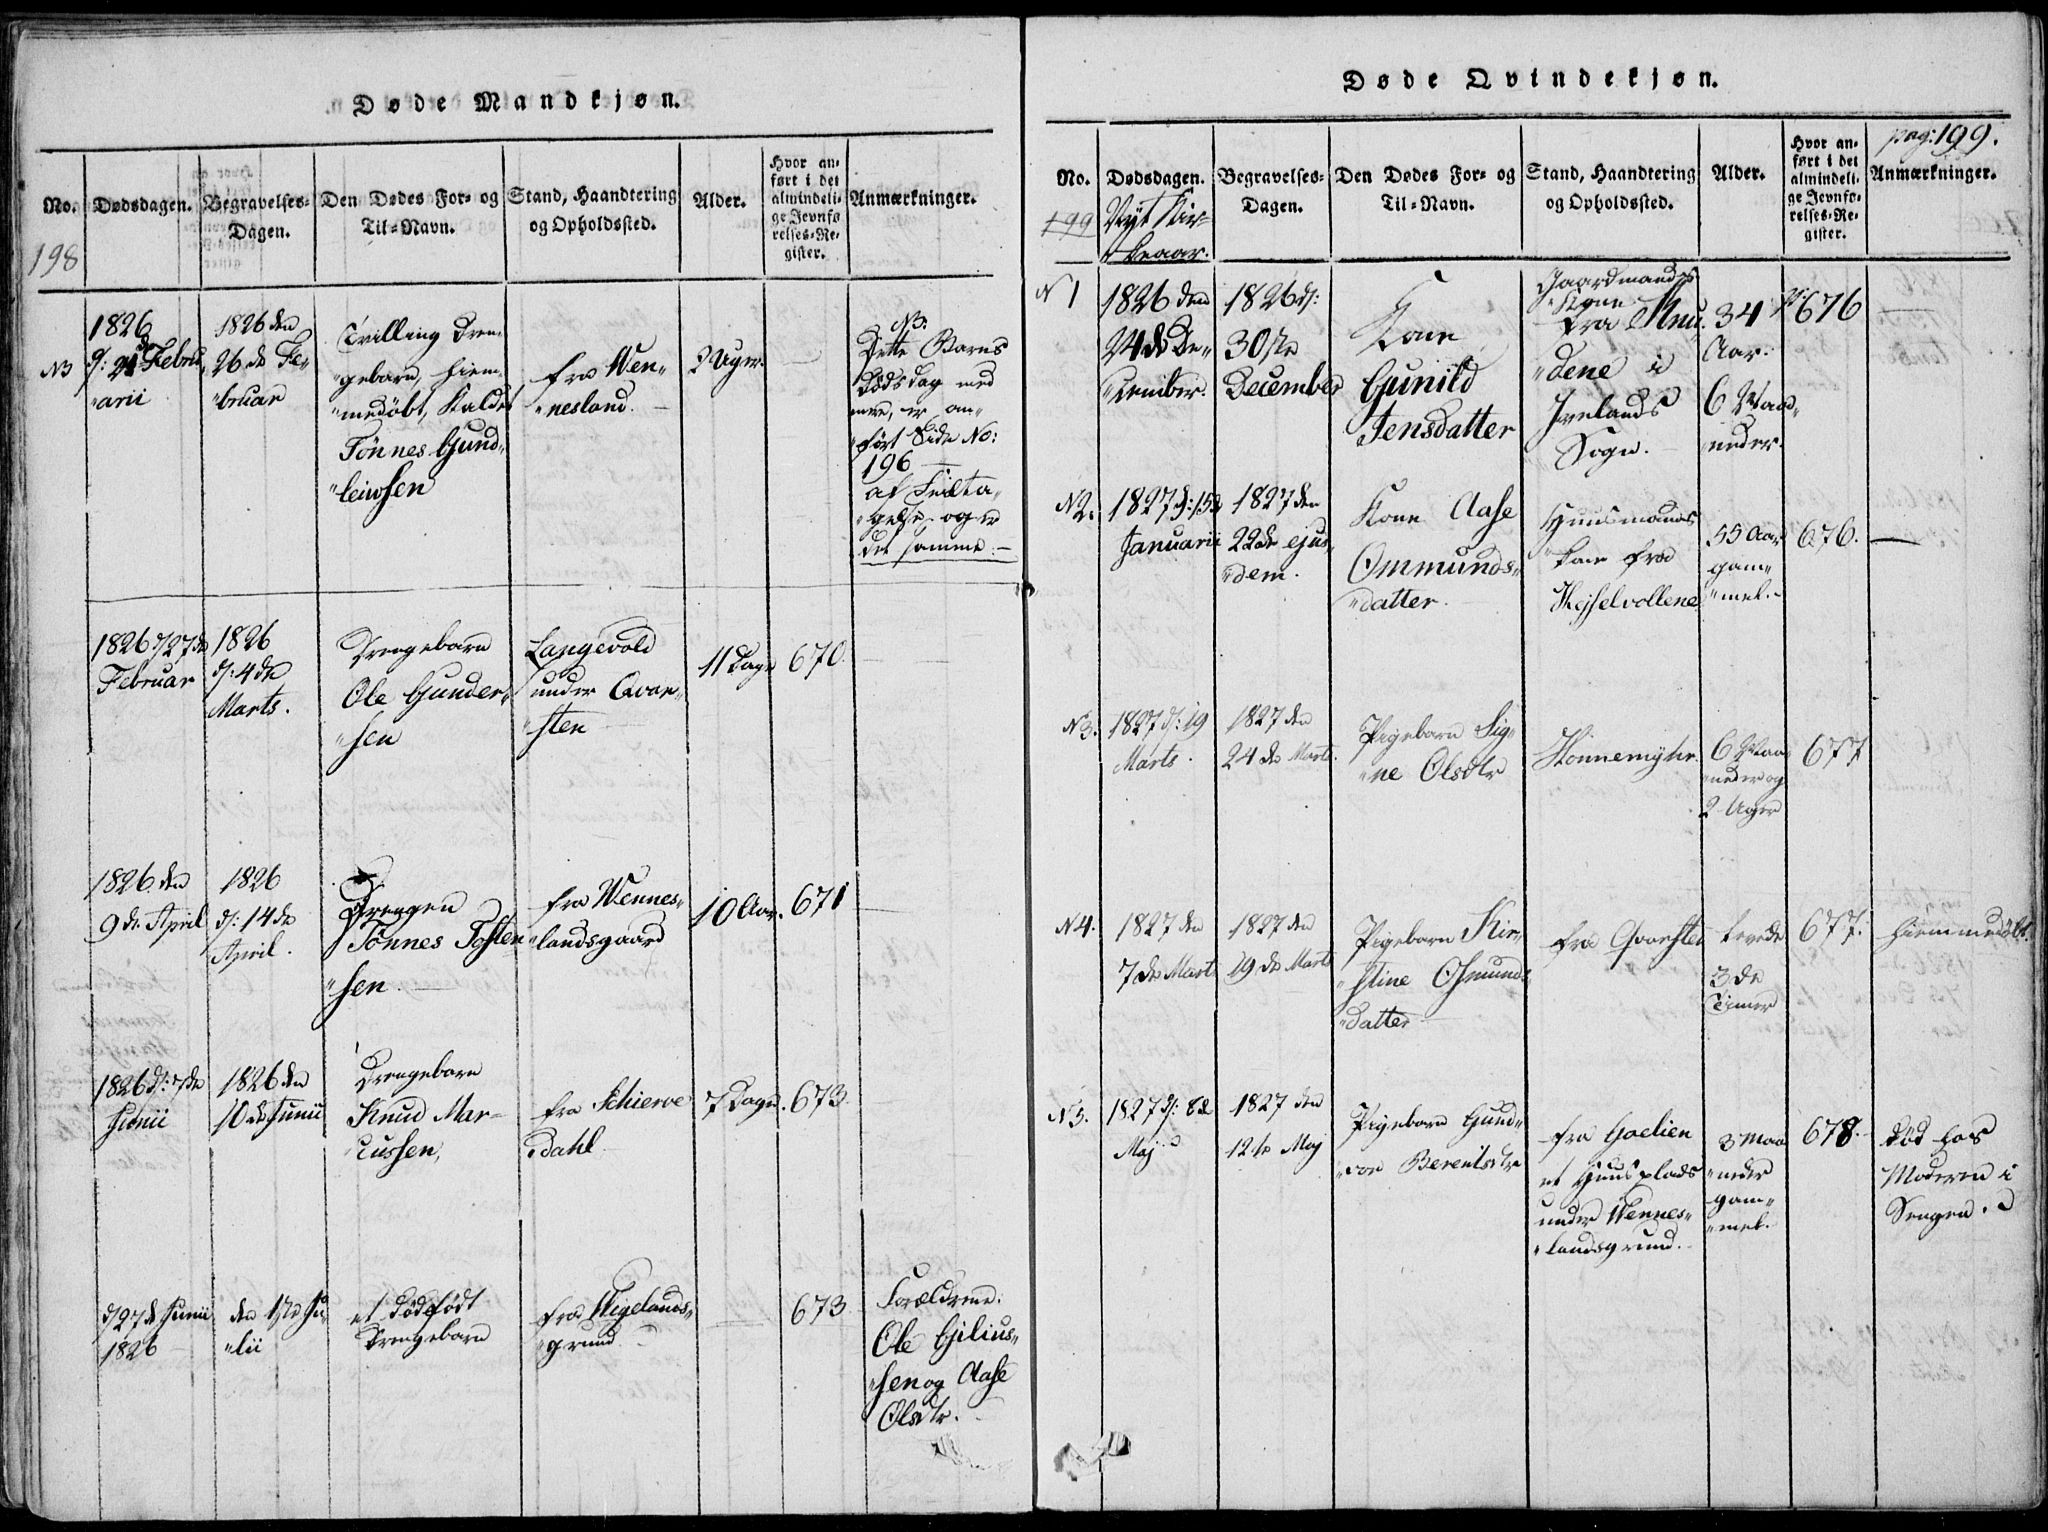 Døde Mandkjøn.
No.
Dødsdagen.
Begravelses-
Dagen.
Den Dødes For- og
Til-Navn.
Stand, Haandtering
og Opholdssted.
Alder.
Hvor an-
ført i det
almindeli-
ge Jevnfø-
relses-Re-
gister.
Anmærkninger.
198
1826
d: 21de Febru
"arii
1826 den
26de Fe-
"bruar
Tvilling Dren-
"gebarn, hiem-
"medøbt, kaldet
Tönnes Gund-
"leivsen
fra Wen-
"nesland.
2 Uger.
NB.
Dette Barns
Dødsdag med
mere, er an-
"ført Side No:
196
af Fejlta-
"gelse og er
det samme.
1826 d/27de
Februar
1826
d: 4de
Marts.
Drengebarn
Ole Gunder-
"sen
Langevold
under Qvar-
"sten
11 Dage
670.
1826 den
9de April
1826
d: 14de
April.
Drengen
Tönnes Tosten-
"sen.
fra Wennes-
"landsgaard
10 Aar.
671
1826 d: 7de
Junii
1826 den
10de Junii
Drengebarn
Knud Mar-
"cussen,
fra Schierve-
"dahl.
7 Dage.
673
d/27de Junii
1826
den 1ste Ju-
"lii
et dödfödt
Drengebarn
fra Wigelands-
"grund.
673
Forældrene.
Ole Gilius-
"sen og Aase
Olsdtr.
Døde Qvindekjøn.
pag: 199.
No.
Dødsdagen.
Begravelses-
Dagen.
Den Dødes For- og
Til-Navn.
Stand, Haandtering
og Opholdssted.
Alder.
Hvor an-
ført i det
almindeli-
ge Jevnfø-
relses-Re-
gister.
Anmærkninger.
199
Nyt Kir-
keaar.
N 1
1826 den
24de De-
"cember.
1826 d:
30ste
December
Kone
Gunild
Jensdatter
Gaardmands
Kone
fra Knu-
"dene i
Ivelands
Sogn.
34
Aar.
6 Maa-
"neder.
p: 676
N2.
1827 d: 15de
Januarii
1827 den
22de ejus-
"dem.
Kone Aase
Ommunds-
"datter.
Huusmands
kone fra
Heiselvollene
55 Aar
gam-
"mel.
676.
N3.
1827 d: 19
Marts.
1827 den
24de Marts.
Pigebarn Sig-
"ne Olsdtr
Honnemyhr.
6 Maa-
"neder og
2 Uger
677
N4.
1827 den
7de Marts
1827 den
19de Marts
Pigebarn Kir-
"stine Osmunds-
datter
fra Qvarsten
levede
3de
Timer
677.
hiemmedöbt.
N5.
1827 d: 8de
Maj
1827 den
12te Maj
Pigebarn Gund-
"vor Berentsdtr
fra Goelien
et Huusplads
under Wennes-
"landsgrund.
3 Maa-
"neder
gam-
"mel.
678.
död hos
Moderen i
Sengen.